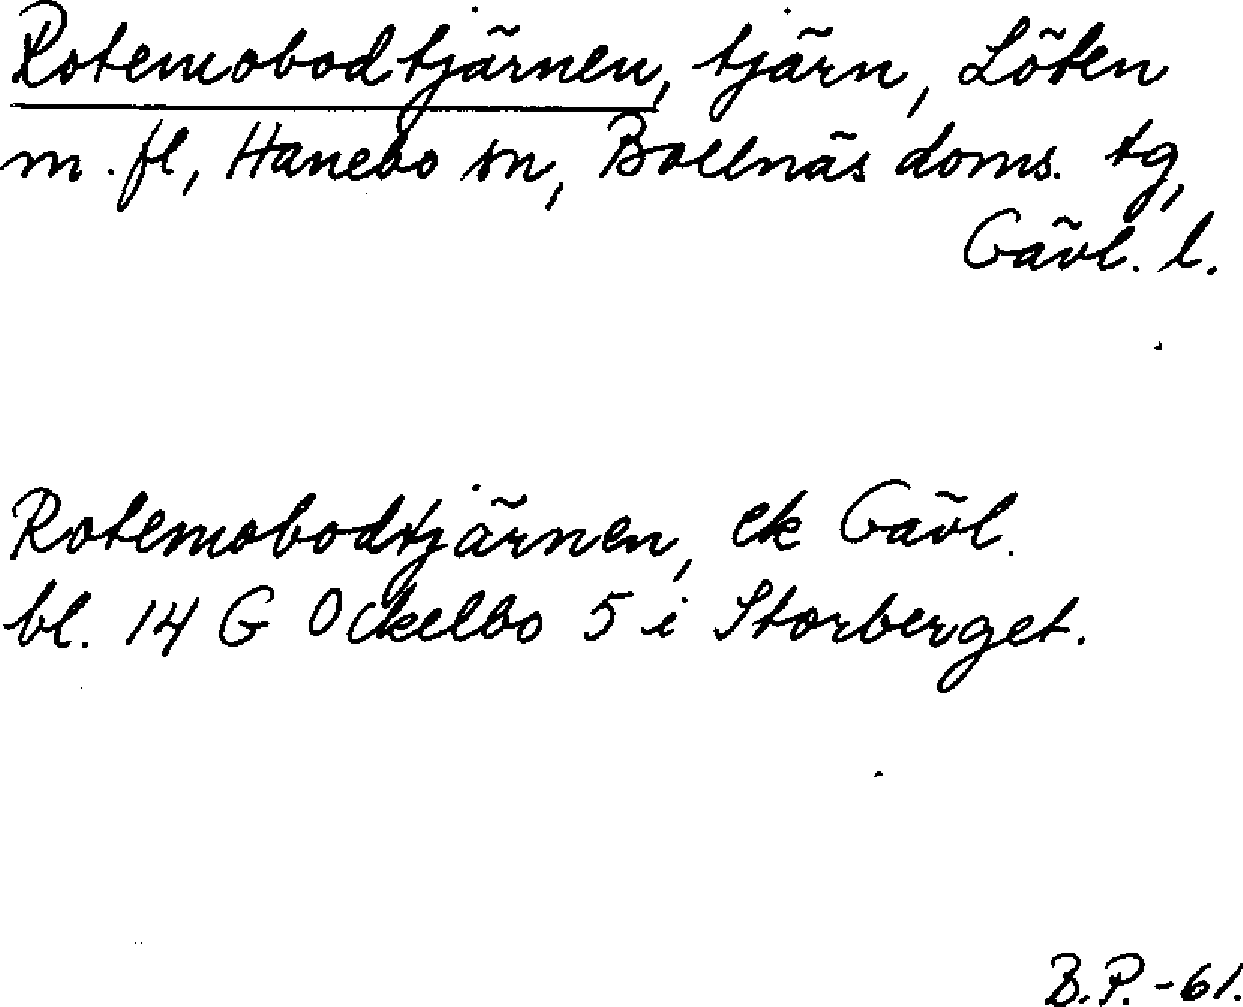 Rotemobodtjärnen, tjärn, Löten
m. fl, Hanebo sn, Bollnäs doms. tg,
Gävl. l.
Rotemobodtjärnen, ek Gävl.
bl. 14 G Ockelbo 5 i Storberget.
B.P. -61.